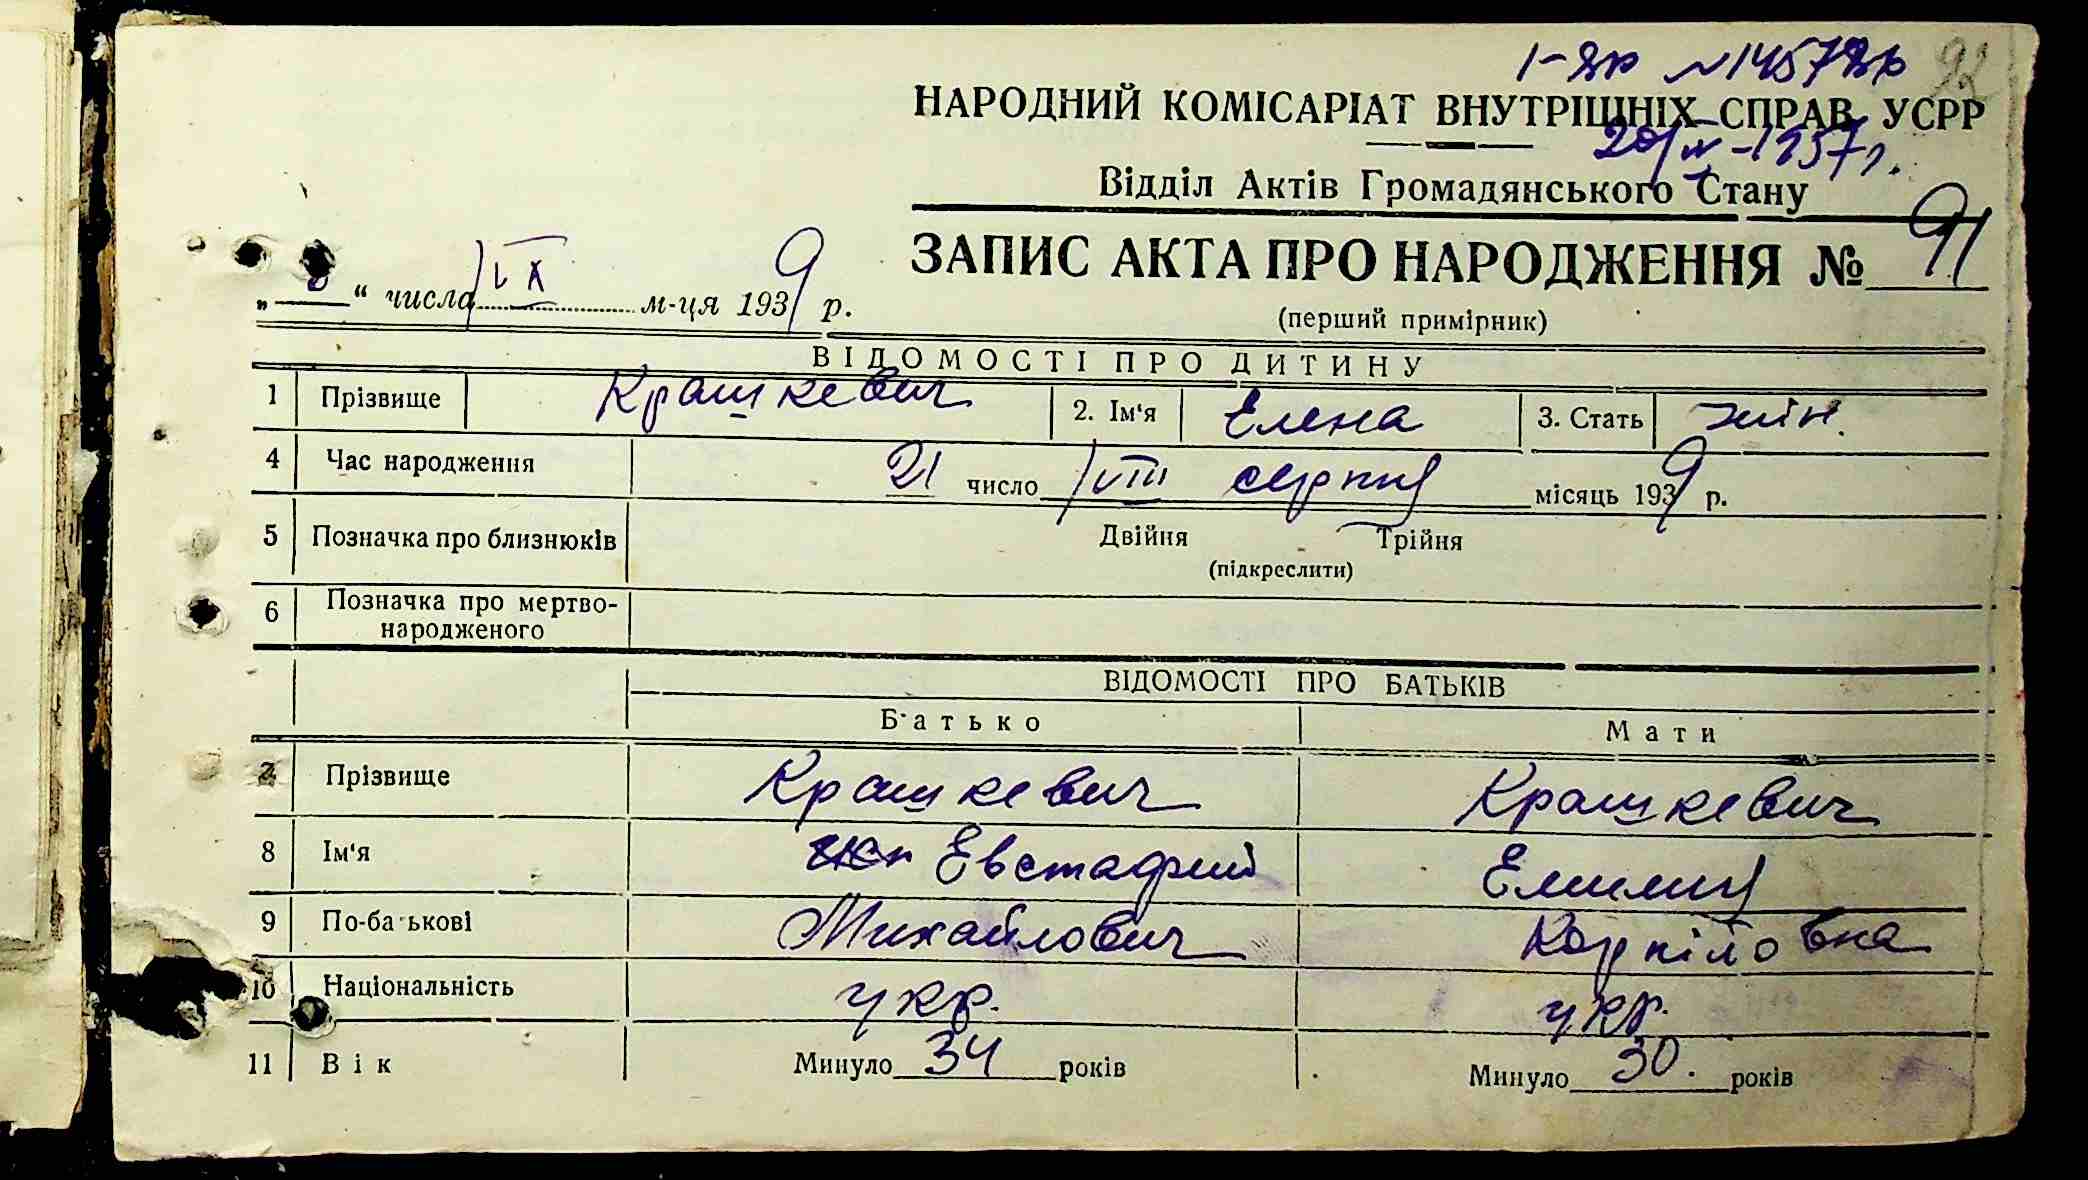 1-яр №14578яр 92
НАРОДНИЙ КОМІСАРІАТ ВНУТРІШНІХ СПРАВ УСРР
20/IV-1957г.
Відділ Актів Громадянського Стану
ЗАПИС АКТА ПРО НАРОДЖЕННЯ № 91
„ “ числа IX м-ця 1939 р.
(перший примірник)
ВІДОМОСТІ ПРО ДИТИНУ
1 Прізвище Крашкевич 2. Ім'я Елена 3. Стать жін.
4 Час народження 21 число VIII серпня місяць 1939 р.
5 Позначка про близнюків Двійня Трійня
(підкреслити)
6 Позначка про мертво-
народженого
ВІДОМОСТІ ПРО БАТЬКІВ
Батько Мати
7 Прізвище Крашкевич Крашкевич
8 Ім'я Евстафий Емилия
9 По-батькові Михайлович Карпіловна
10 Національність укр. укр.
11 Вік Минуло 34 років Минуло 30. років